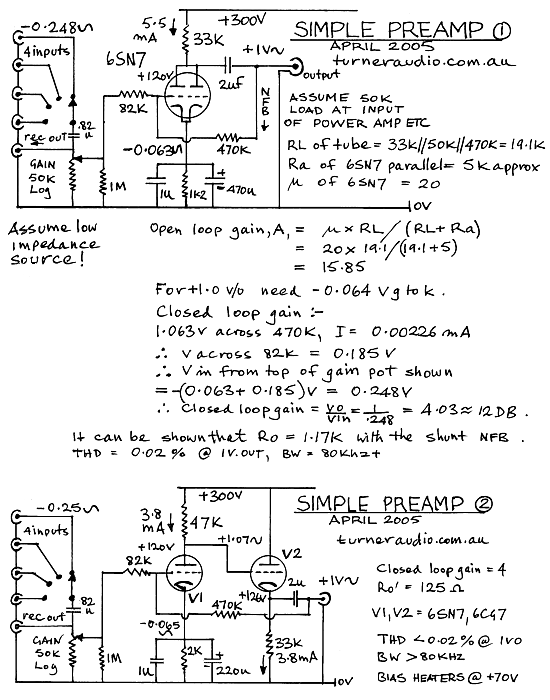 -0.248~
4 inputs
rec out
.82 u
GAIN 50K Log
1M
82K
6SN7
5.5 mA
+300V
33K
+120V
2uf
+1V~
output
NFB
470K
-0.063~
1u
1k2
470u
0V
SIMPLE PREAMP ①
APRIL 2005
turneraudio.com.au
ASSUME 50K
LOAD AT INPUT
OF POWER AMP ETC
RL of tube = 33K//50K//470K = 19.1K
Ra of 6SN7 parallel = 5K approx
µ of 6SN7 = 20
Assume low
impedance
source!
Open loop gain, A, = µ x RL/(RL+Ra)
= 20 x 19.1/(19.1+5)
= 15.85
For +1.0 v/o need -0.064 V g to k.
Closed loop gain :-
1.063V across 470K, I = 0.00226 mA
∴ V across 82K = 0.185V
∴ Vin from top of gain pot shown
=-(0.063+0.185)V = 0.248V
∴ Closed loop gain = Vo/Vin = 1/.248 = 4.03 ≈ 12DB.
It can be shown that Ro = 1.17K with the shunt NFB.
THD = 0.02% @ 1V.OUT, BW = 80KHz+
-0.25~
4 inputs
rec out
.82 u
GAIN 50K Log
1M
82K
3.8 mA
+300V
47K
+120V
+1.07~
V1
V2
-0.065~
470K
+126V
2u
+1V~
1u
2K
220u
33K
3.8mA
0V
SIMPLE PREAMP ②
APRIL 2005
turneraudio.com.au
Closed loop gain = 4
Ro' = 125 Ω
V1,V2 = 6SN7, 6CG7
THD <0.02% @ 1VO
BW > 80KHZ
BIAS HEATERS @ +70V